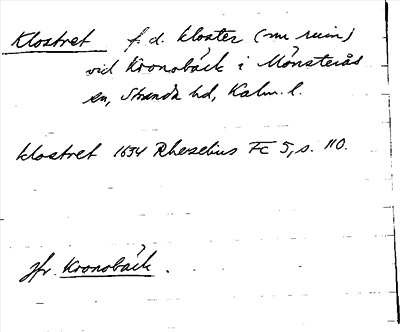 Klostret f. d. kloster (nu ruin)
vid Kronobäck i Mönsterås
sn, Stranda hd, Kalm. l.
klostret 1634 Rhezelius Fc 5, s. 110.
jfr Kronobäck.